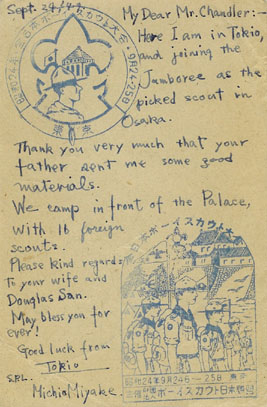 Sept. 24/49.
My Dear Mr. Chandler:-
Here I am in Tokio,
and joining the
Jamboree as the
picked scout in
Osaka.
昭和24年 全日本ボーイスカウト大会 9月24-25日
東京
Thank you very much that your
father sent me some good
materials.
We camp in front of the Palace,
with 16 foreign
scouts.
Please kind regards
to your wife and
Douglas San.
May bless you for
ever!
Good luck from
Tokio
S.P.L.
Michio Miyake.
全日本ボーイスカウト大会
昭和24年9月24日-25日 東京
ボーイスカウト日本連盟